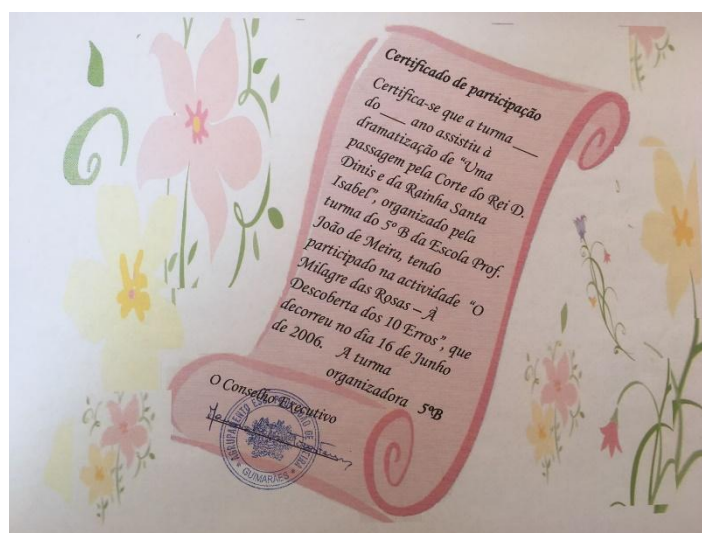 Certificado de participação
Certifica-se que a turma ___
do ___ ano assistiu à
dramatização de “Uma
passagem pela Corte do Rei D.
Dinis e da Rainha Santa
Isabel”, organizado pela
turma do 5º B da Escola Prof.
João de Meira, tendo
participado na actividade “O
Milagre das Rosas – À
Descoberta dos 10 Erros”, que
decorreu no dia 16 de Junho
de 2006. A turma
organizadora 5ºB
O Conselho Executivo
AGRUPAMENTO DE MEIRA
GUIMARÃES